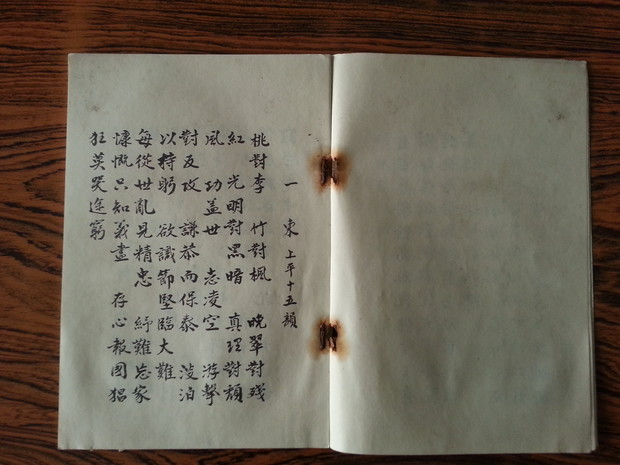 一 東 上平十五韻
桃對李 竹對楓 晚翠對殘
紅 光明對黑暗 真理對頑
風 功盖世 志凌空 游擊
對反攻 謙恭而保泰 淡泊
以持躬 欲識節堅臨大難
每從世亂見精忠 紓難忘家
慷慨只知義盡 存心報國猖
狂莫哭途窮